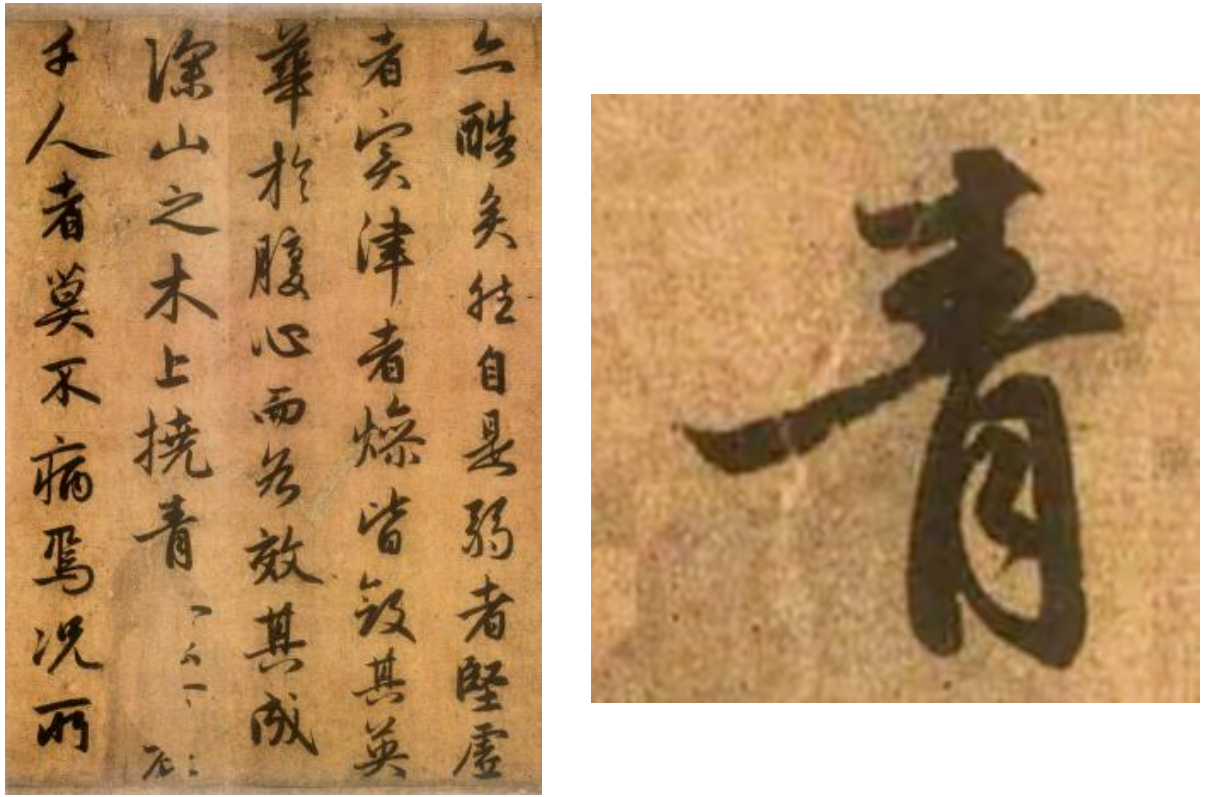 亦酷矣然自是弱者堅虛
者實津者燥皆斂其英
華於腹心而各效其成
深山之木上撓青
千人者莫不病焉況所
青